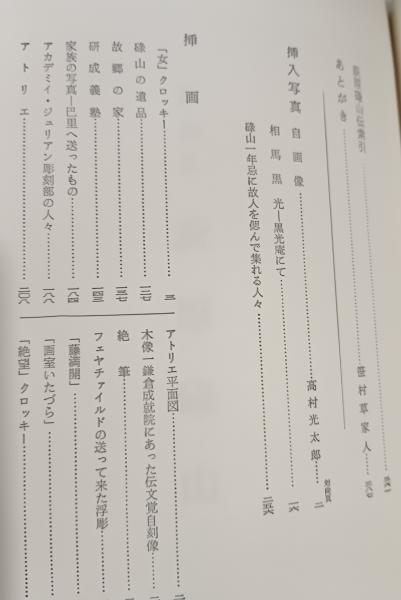 荻原碌山伝索引
あとがき 笹村草家人
挿入写真
自画像 高村光太郎 対向頁
相馬黒光―黒光庵にて
碌山一年忌に故人を偲んで集れる人々
挿画
「女」クロッキー
碌山の遺品
故郷の家
研成義塾
家族の写真―巴里へ送ったもの
アカデミイ・ジュリアン彫刻部の人々
アトリエ
アトリエ平面図
木像―鎌倉成就院にあった伝文覚自刻像
絶筆
フェヤチァイルドの送って来た浮彫
「藤満開」
「画室いたづら」
「絶望」クロッキー